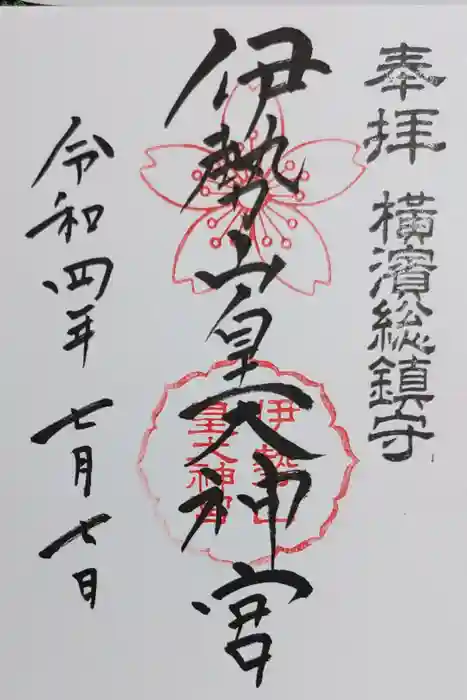 奉拝 横濱総鎮守
伊勢山皇大神宮
伊勢山
皇大神宮
令和四年 七月七日